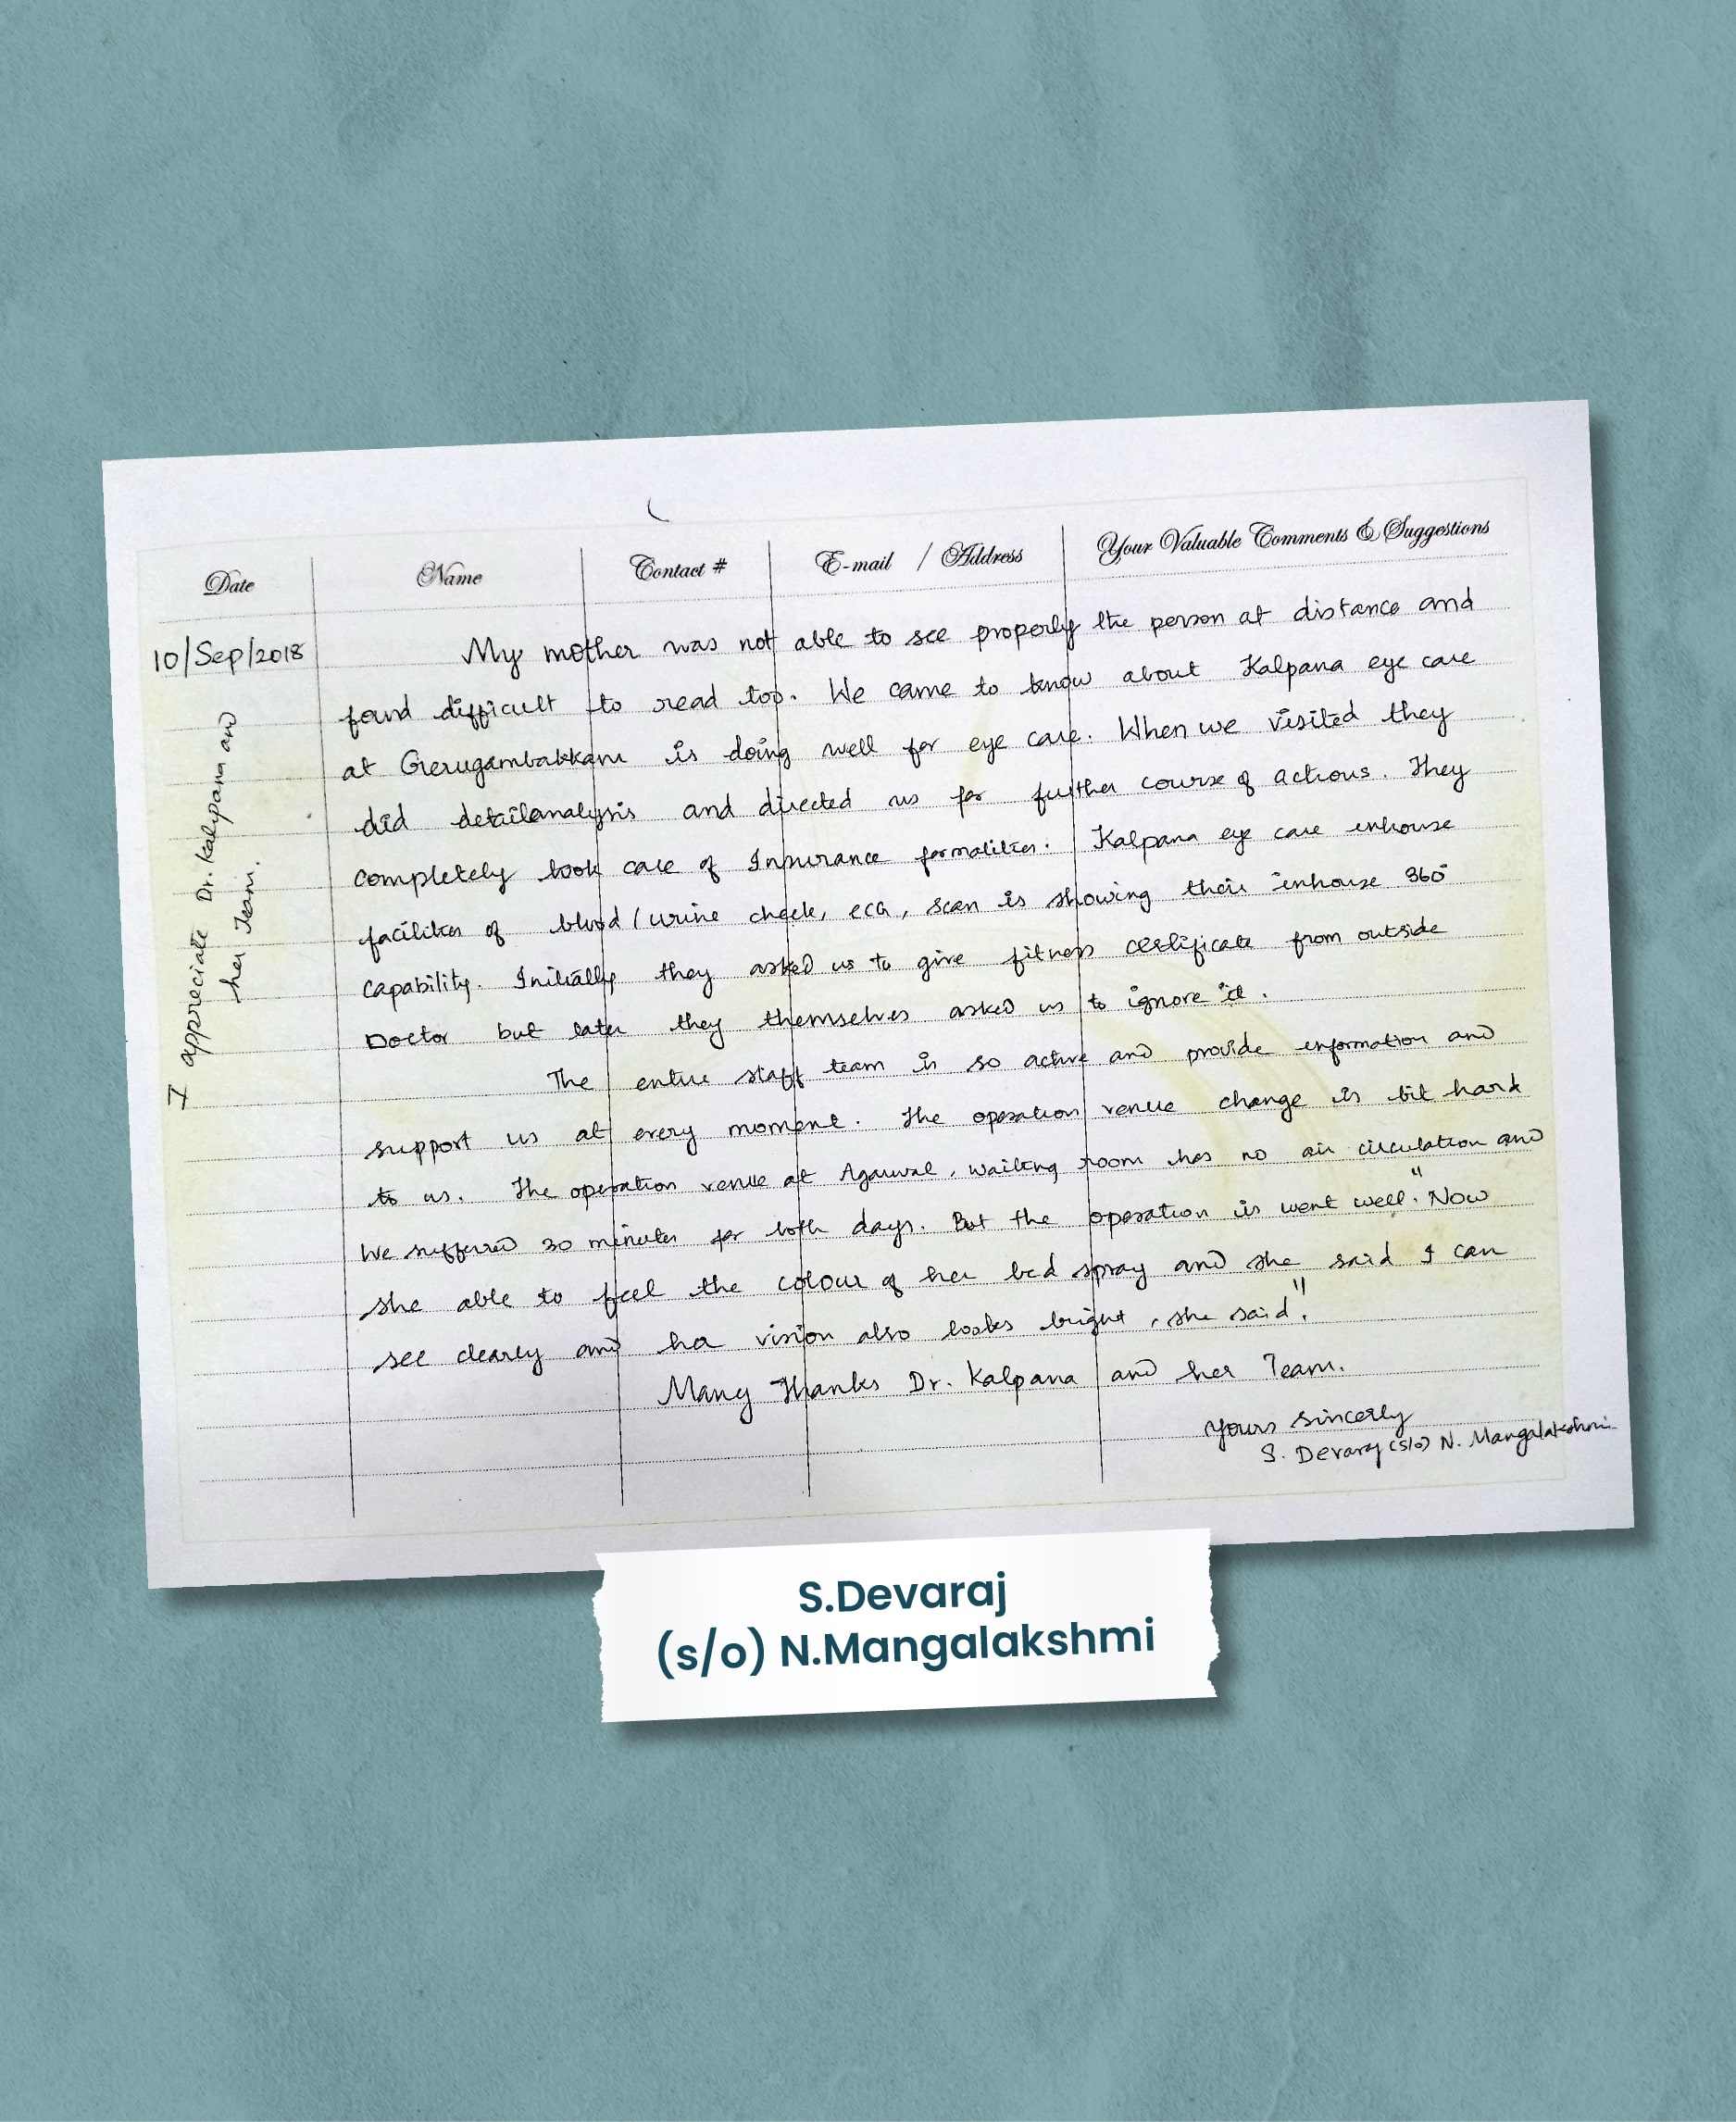 Date Name Contact # E-mail / Address Your Valuable Comments & Suggestions
10/Sep/2018
My mother was not able to see properly the person at distance and
found difficult to read too. We came to know about Kalpana eye care
at Gerugambakkam is doing well for eye care. When we visited they
did detailanalysis and directed us for further course of actions. They
completely took care of Insurance formalities. Kalpana eye care inhouse
facilities of blood / urine check, ECG, scan is showing their inhouse 360°
capability. Initially they asked us to give fitness certificate from outside
Doctor but later they themselves asked us to ignore it.
The entire staff team is so active and provide information and
support us at every moment. The operation venue change is bit hard
to us. The operation venue at Agarwal, waiting room has no air circulation and
We suffered 30 minutes for both days. But the operation is went well. "Now
she able to feel the colour of her bed spray and she said I can
see clearly and her vision also looks bright, she said".
Many Thanks Dr. Kalpana and her Team.
Yours Sincerly
S. Devaraj (s/o) N. Mangalakshmi
I appreciate Dr. Kalpana and
her Team.
S.Devaraj
(s/o) N.Mangalakshmi